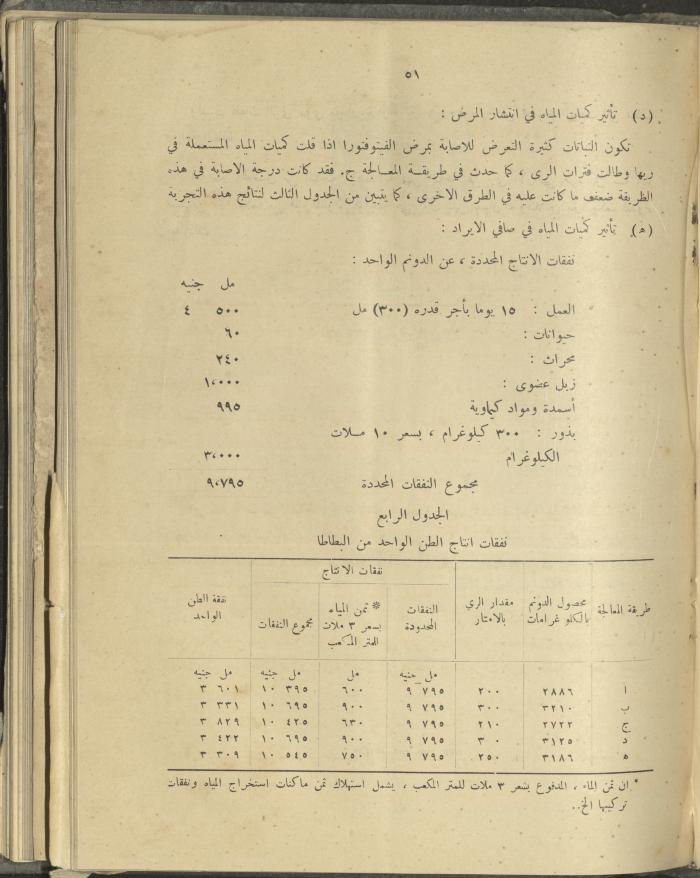 ٥١
(د) تأثير كميات المياه في انتشار المرض :
تكون النباتات كثيرة التعرض للاصابة بمرض الفيتوفتورا اذا قلت كميات المياه المستعملة في
ريها وطالت فترات الرى ، كما حدث في طريقة المعالجة ج. فقد كانت درجة الاصابة في هذه
الطريقة ضعف ما كانت عليه في الطرق الاخرى ، كما يتبين من الجدول الثالث لنتائج هذه التجربة
(ه) تأثير كميات المياه في صافي الايراد :
نفقات الانتاج المحددة ، عن الدونم الواحد :
مل جنيه
العمل : ١٥ يوما بأجر قدره (٣٠٠) مل ٥٠٠ ٤
حيوانات : ٦٠
محراث : ٢٤٠
زبل عضوى : ١،٠٠٠
أسمدة ومواد كيماوية ٩٩٥
بذور : ٣٠٠ كيلوغرام ، بسعر ١٠ ملات
الكيلوغرام ٣،٠٠٠
مجموع النفقات المحددة ٩،٧٩٥
الجدول الرابع
نفقات انتاج الطن الواحد من البطاطا
نفقات الانتاج
طريقة المعالجة محصول الدونم بالكلو غرامات مقدار الري بالامتار النفقات المحدودة * ثمن المياه بسعر ٣ ملات للمتر المكعب مجموع النفقات نفقة الطن الواحد
مل جنيه مل مل جنيه مل جنيه
ا ٢٨٨٦ ٢٠٠ ٧٩٥ ٩ ٦٠٠ ٣٩٥ ١٠ ٦٠١ ٣
ب ٣٢١٠ ٣٠٠ ٧٩٥ ٩ ٩٠٠ ٦٩٥ ١٠ ٣٣١ ٣
ج ٢٧٢٢ ٢١٠ ٧٩٥ ٩ ٦٣٠ ٤٢٥ ١٠ ٨٢٩ ٣
د ٣١٢٥ ٣٠٠ ٧٩٥ ٩ ٩٠٠ ٦٩٥ ١٠ ٤٢٢ ٣
ه ٣١٨٦ ٢٥٠ ٧٩٥ ٩ ٧٥٠ ٥٤٥ ١٠ ٣٠٩ ٣
* ان ثمن الماء ، المدفوع بسعر ٣ ملات للمتر المكعب ، يشمل استهلاك ثمن ماكنات استخراج المياه ونفقات
تركيبها الخ..